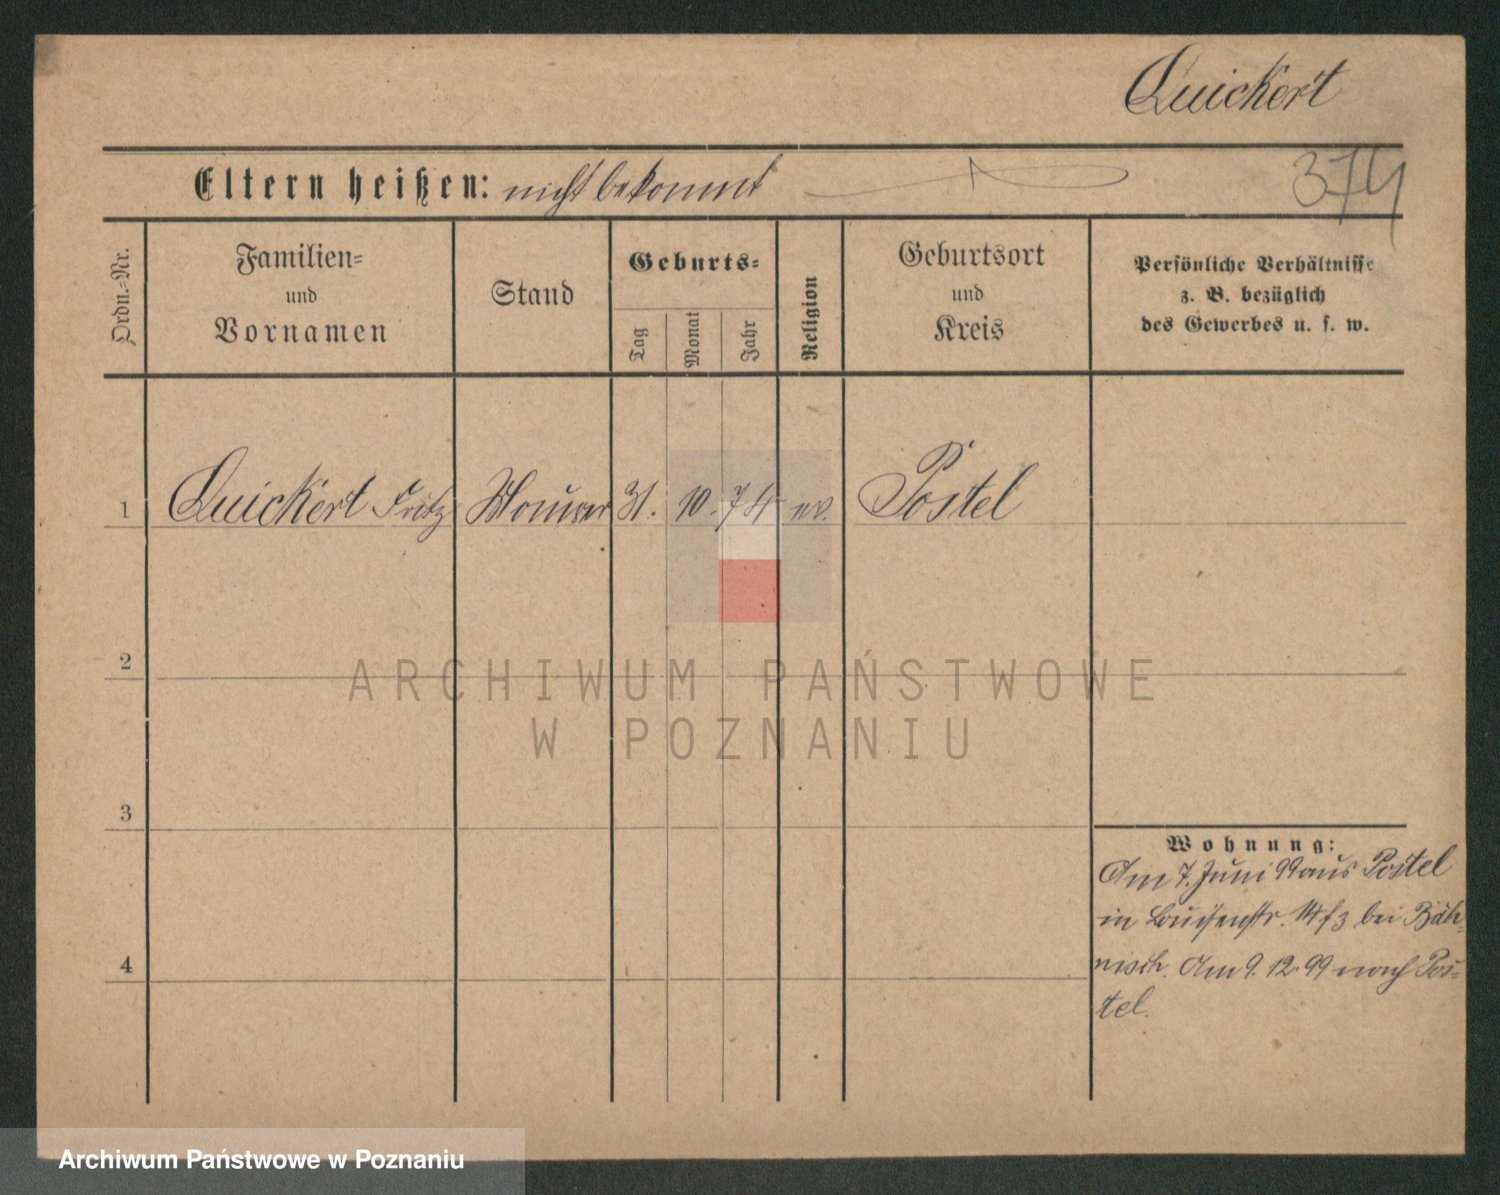 Quickert
Eltern heißen: nicht bekannt
374
Ordn.-Nr.
Familien-
und
Vornamen
Stand
Geburts-
Tag
Monat
Jahr
Religion
Geburtsort
und
Kreis
Persönliche Verhältnisse
z. B. bezüglich
des Gewerbes u. s. w.
1 Quickert Fritz Maurer 31. 10. 74 ev. Postel
2
ARCHIWUM PAŃSTWOWE
W POZNANIU
3
Wohnung:
Am 7. Juni 99 aus Postel
in Louisenstr. 14 f3 bei Bäh-
nisch. Am 9. 12. 99 nach Pos-
tel.
4
Archiwum Państwowe w Poznaniu